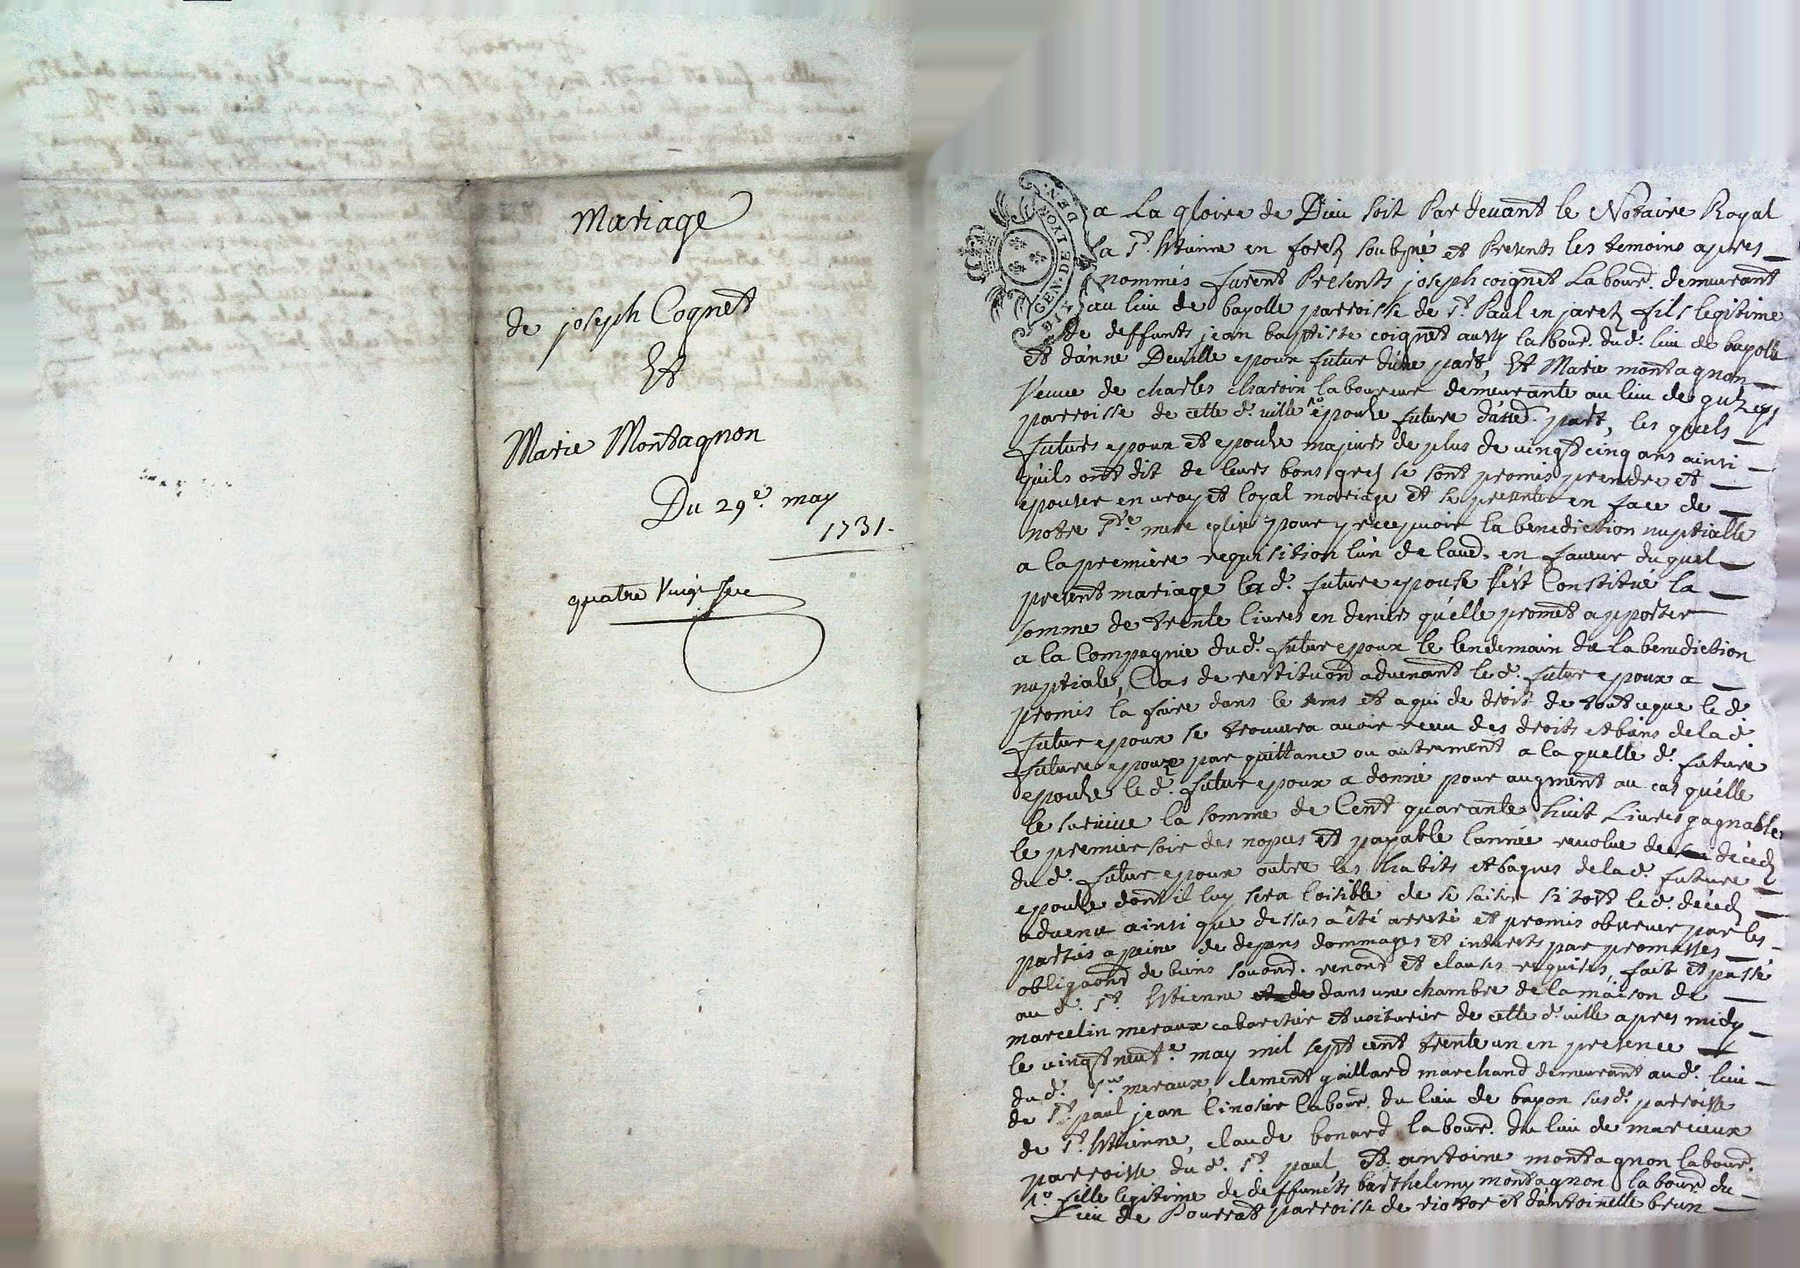 Mariage
de joseph Cognet
Et
Marie Montagnon
Du 29e. may
1731.
quatre Vingt
GEN. DE LYON
a La gloire de Dieu soit Par devant le Notaire Royal
a St. Etienne en forez soubsigné et Presents les temoins apres
nommés furent Presents joseph coignet Labour. demeurant
au lieu de bayolle parroisse de St. Paul en jarez fils legitime
de deffunts jean baptiste coignet aussy labour. dud. lieu de bayolle
Et d'anne Deville epoux futur d'une part, Et Marie montagnon
Veuve de charles charoin laboureur demeurante au lieu de
parroisse de cette d. ville 1o epouse future d'autre part, les quels
futurs epoux et epouse majeurs de plus de vingt cinq ans ainsi
qu'ils ont dit de leurs bons grez se sont promis prendre et
epouser en vray et loyal mariage et se presenter en face de
notre Ste. mere eglise pour y recepvoir la benediction nuptialle
a la premiere requisition l'un de laud. en faveur du quel
present mariage la d. future epouse s'est Constitué la
somme de trente livres en deniers qu'elle promet apporter
a la Compagnie dud. futur epoux le lendemain de la benediction
nuptiale, Cas de restituõn advenant le d. futur epoux a
promis la faire dans le tems et a qui de droit de tout ce que le d.
futur epoux se trouvera avoir receu des droits et biens de la d.
future epouze par quittance ou autrement a la quelle d. future
epouse le d. futur epoux a donné pour augment au cas qu'elle
le survive la somme de Cent quarante huit Livres gagnable
le premier soir des nopces et payable l'année revolue de decedz
du d. futur epoux outre les habits et bagues de la d. future
epouse dont il luy sera loisible de se saisir si tost le d. décedz
advenu ainsi que dessus a été arresté et promis observer par les
parties a peine de depans dommages et interests par promesses
obligaõns de biens soumõ. renonõ et clauses requises, fait et passé
au d. St. Etienne dans une chambre de la maison de
marcelin meraux cabartier et voiturier de cette d. ville apres midy
le vingt neufe. may mil sept cent trente un en presence
du d. Sr. meraux, clement gaillard marchand demeurant au d. lieu
de St. paul jean linossier labour. du lieu de bayon susd. parroisse
de St. Etienne, claude bonard labour. du lieu de marcieux
parroisse du d. St. paul, Et antoine montagnon labour.
1o. fille legitime de deffuncts barthelemy montagnon labour. du
Lieu de Pourrat parroisse de riotor et d'antoinelle brun